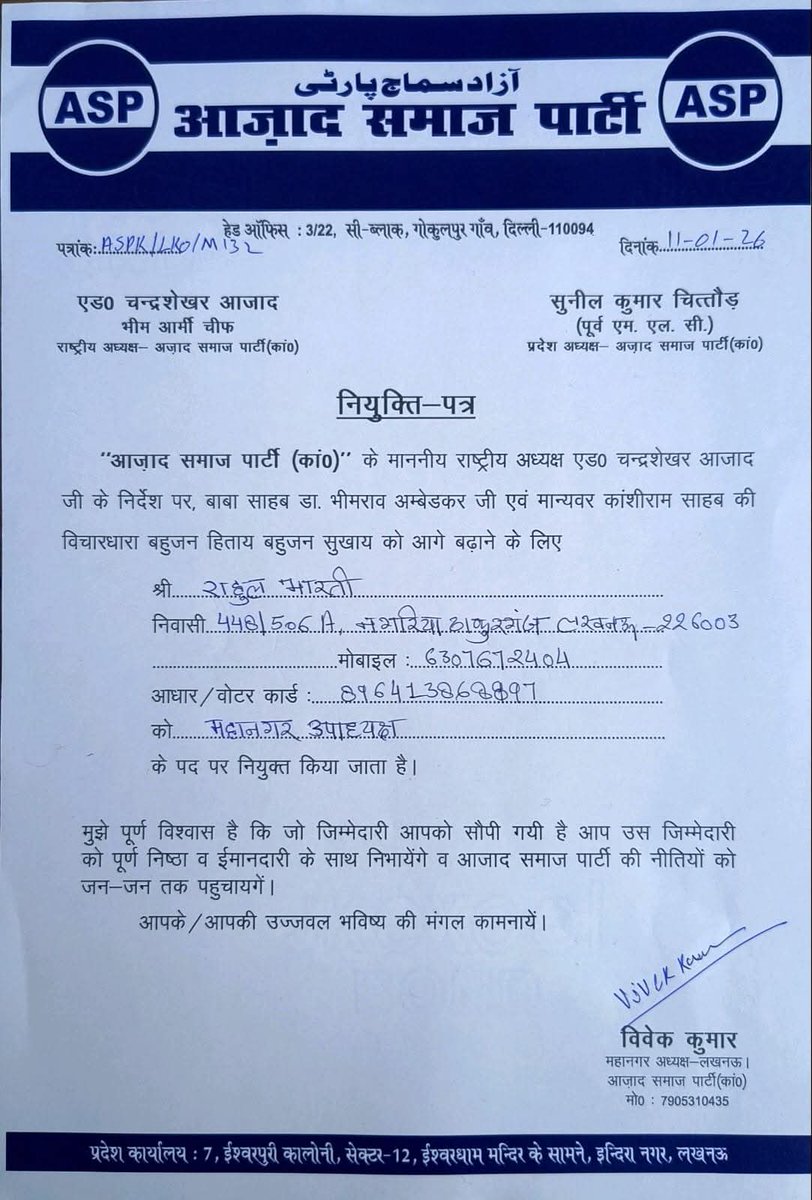 ASP
آزاد سماج پارٹی
आज़ाद समाज पार्टी
ASP
हेड ऑफिस : 3/22, सी-ब्लाक, गोकुलपुर गाँव, दिल्ली-110094
पत्रांक: ASPK/LKO/M132
दिनांक 11-01-26
एड0 चन्द्रशेखर आजाद
भीम आर्मी चीफ
राष्ट्रीय अध्यक्ष– अज़ाद समाज पार्टी(कां0)
सुनील कुमार चित्तौड़
(पूर्व एम. एल. सी.)
प्रदेश अध्यक्ष– अज़ाद समाज पार्टी(कां0)
नियुक्ति–पत्र
"आज़ाद समाज पार्टी (कां0)" के माननीय राष्ट्रीय अध्यक्ष एड0 चन्द्रशेखर आजाद
जी के निर्देश पर, बाबा साहब डा. भीमराव अम्बेडकर जी एवं मान्यवर कांशीराम साहब की
विचारधारा बहुजन हिताय बहुजन सुखाय को आगे बढ़ाने के लिए
श्री राहुल भारती
निवासी 448/506 A, नगरिया ठाकुरगंज लखनऊ-226003
मोबाइल : 6307672404
आधार/वोटर कार्ड : 896413868897
को महानगर उपाध्यक्ष
के पद पर नियुक्त किया जाता है।
मुझे पूर्ण विश्वास है कि जो जिम्मेदारी आपको सौपी गयी है आप उस जिम्मेदारी
को पूर्ण निष्ठा व ईमानदारी के साथ निभायेंगे व आजाद समाज पार्टी की नीतियों को
जन–जन तक पहुचायगें।
आपके/आपकी उज्जवल भविष्य की मंगल कामनायें।
Vivek Kumar
विवेक कुमार
महानगर अध्यक्ष–लखनऊ।
आज़ाद समाज पार्टी(कां0)
मो0 : 7905310435
प्रदेश कार्यालय : 7, ईश्वरपुरी कालोनी, सेक्टर-12, ईश्वरधाम मन्दिर के सामने, इन्दिरा नगर, लखनऊ